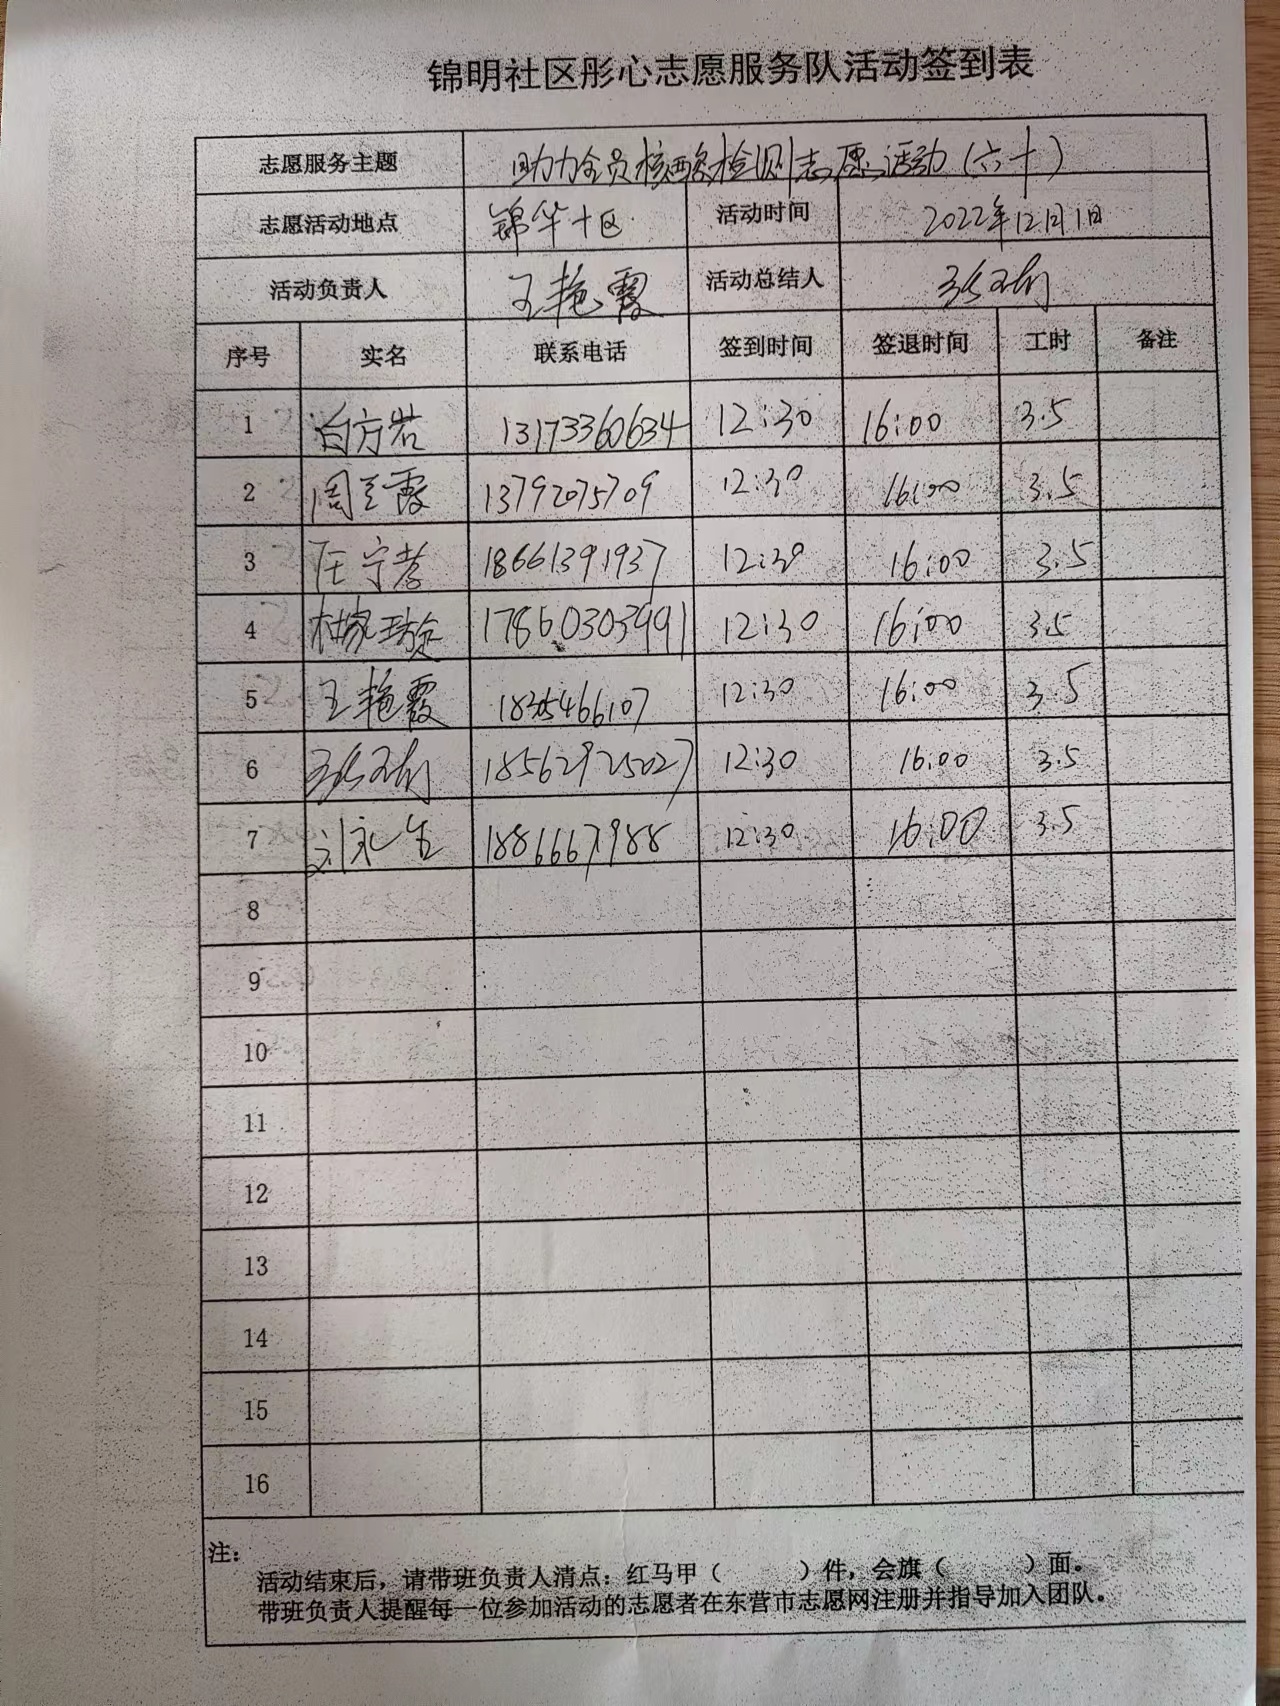 锦明社区彤心志愿服务队活动签到表
志愿服务主题 助力全员核酸检测志愿活动(六十)
志愿活动地点 锦华十区 活动时间 2022年12月1日
活动负责人 王艳霞 活动总结人
序号 实名 联系电话 签到时间 签退时间 工时 备注
1 白方岩 13173360634 12:30 16:00 3.5
2 周兰霞 13792075709 12:30 16:00 3.5
3 任宁孝 18661391937 12:30 16:00 3.5
4 林家璇 17860303991 12:30 16:00 3.5
5 王艳霞 12:30 16:00 3.5
6 18562925027 12:30 16:00 3.5
7 刘永生 18866671988 12:30 16:00 3.5
8
9
10
11
12
13
14
15
16
注:
活动结束后,请带班负责人清点:红马甲( )件,会旗( )面。
带班负责人提醒每一位参加活动的志愿者在东营市志愿网注册并指导加入团队。